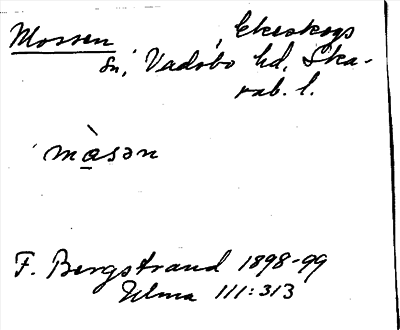 Mossen, Ekeskogs
sn, Vadsbo hd, Ska-
rab. l.
mòsən
F. Bergstrand 1898-99
Ulma 111:313